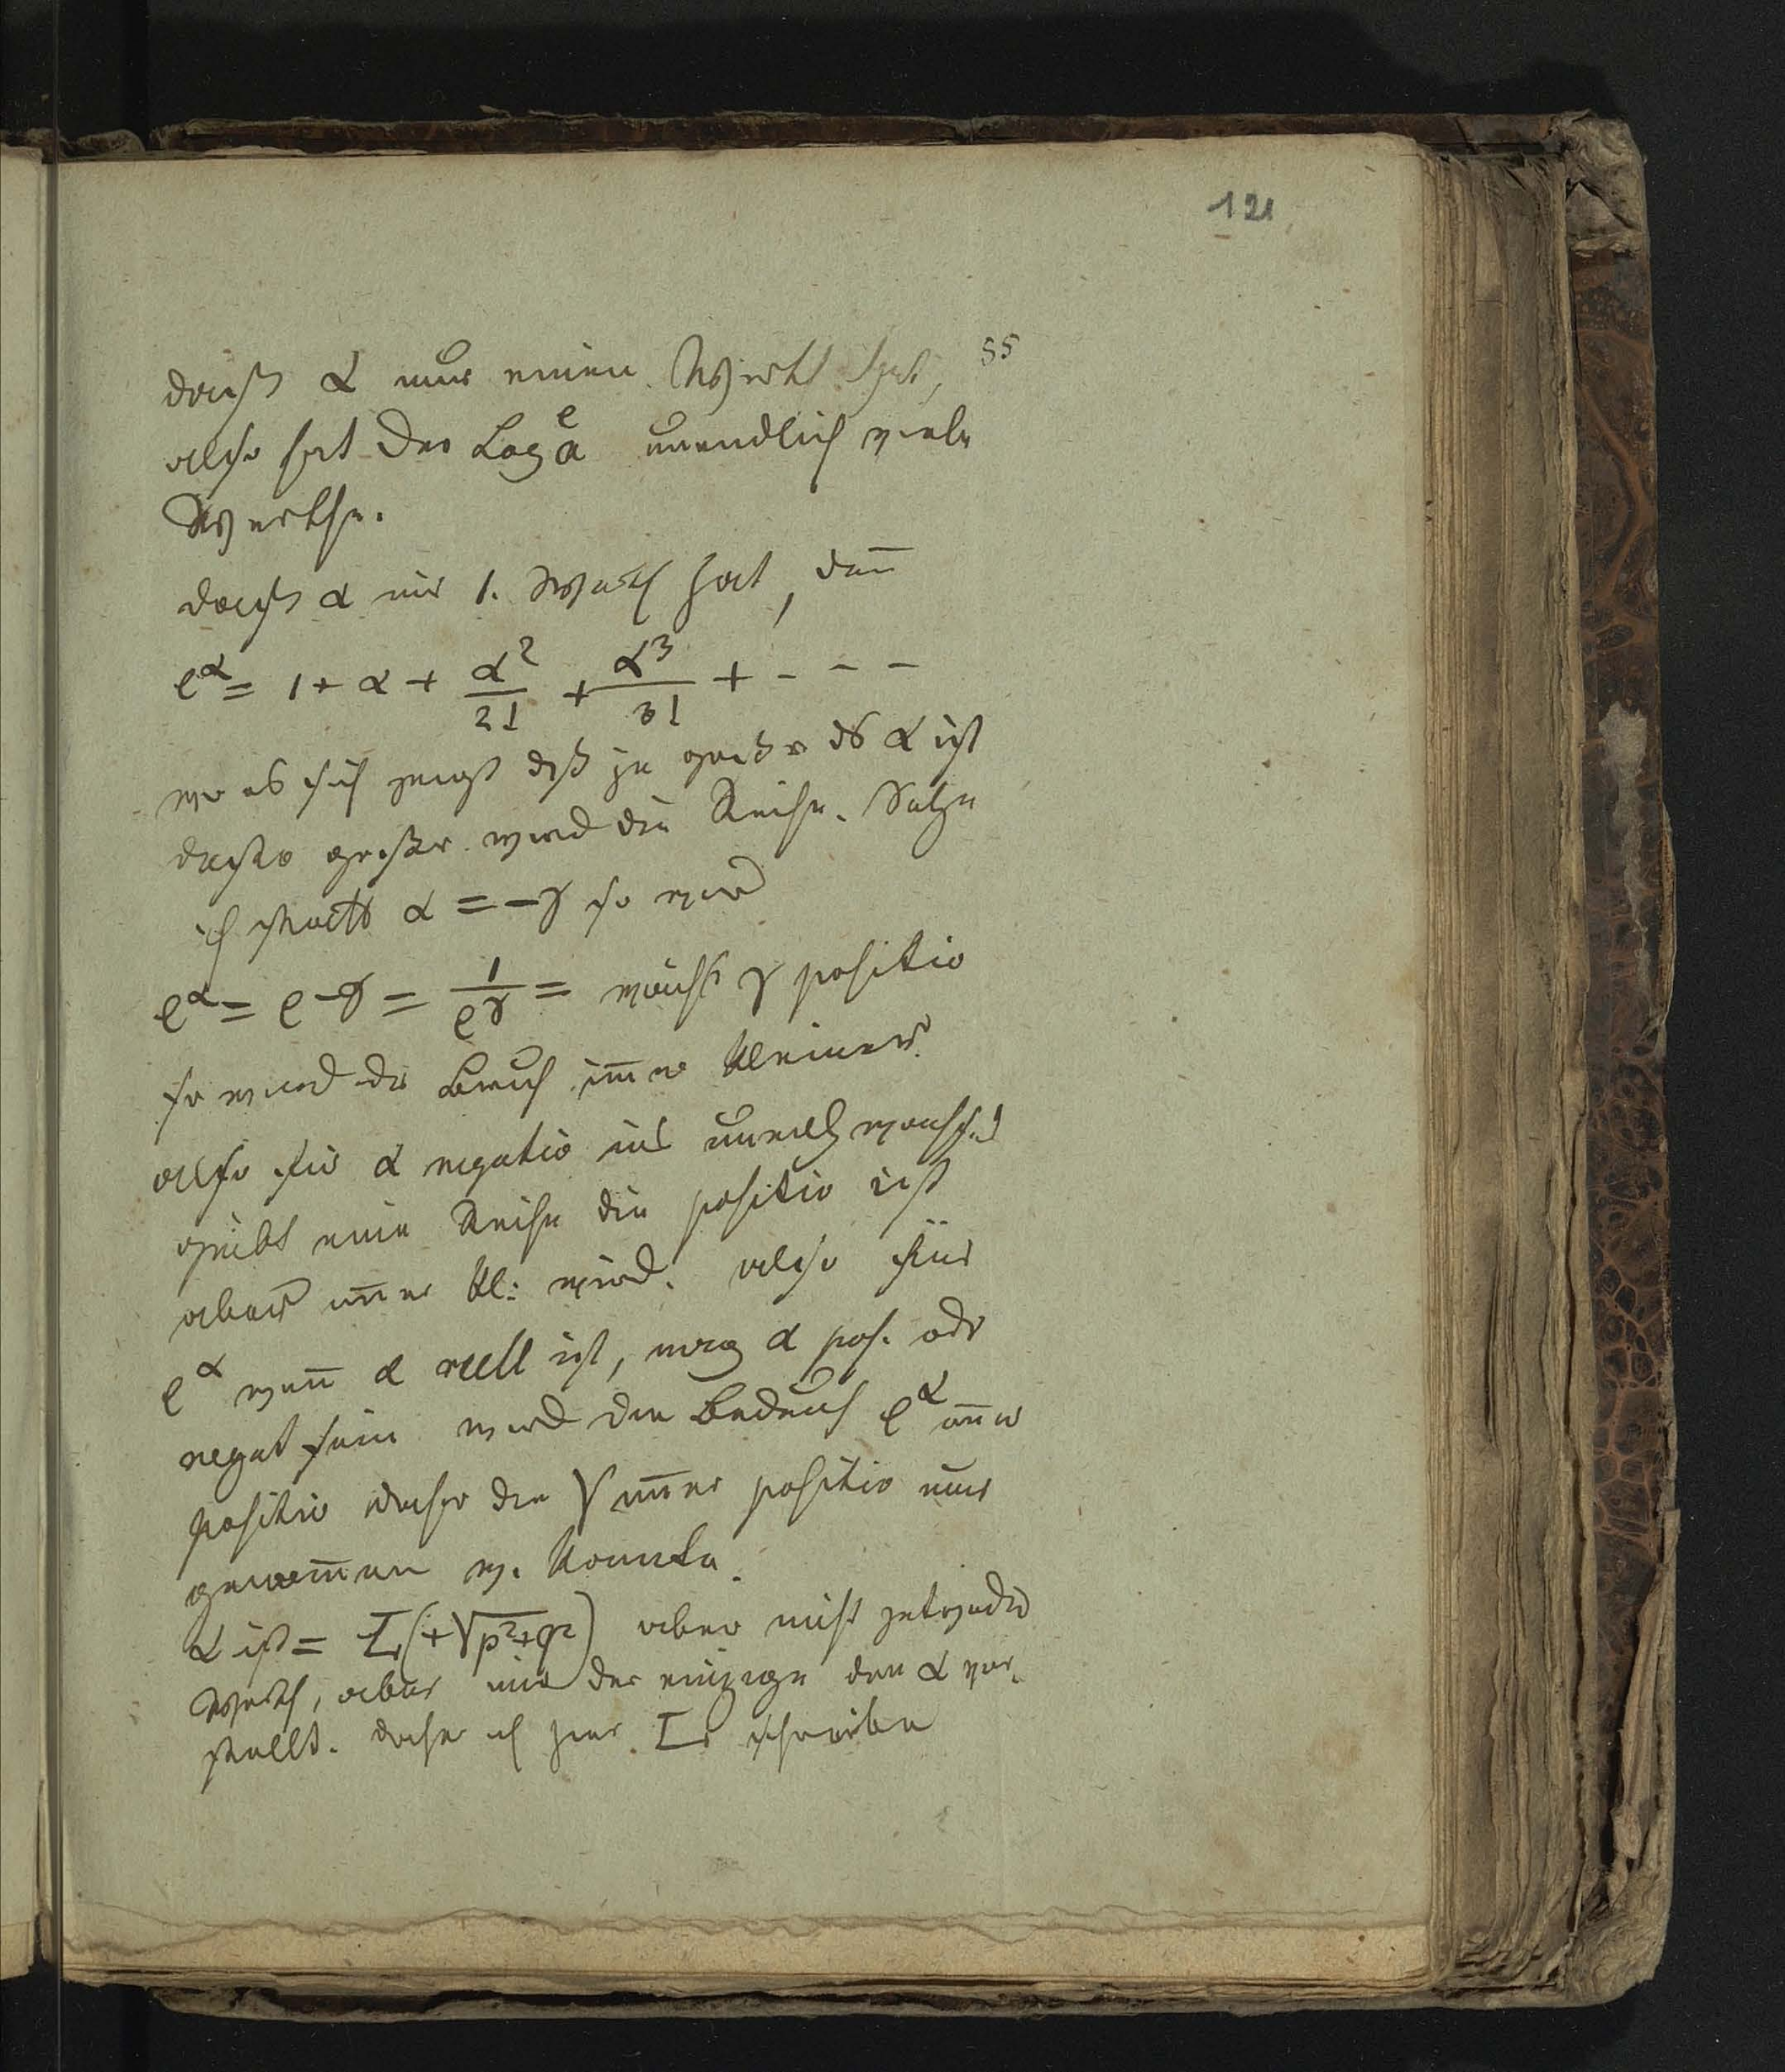 121
55
daß α nur einen Werth hat,
also hat der Log e a unendlich viele
Werthe.
daß α nur 1. Werth hat, den̄
e^α = 1 + α + α²/2! + α³/3! + - - -
wo es sich zeigt daß je größer α ist
desto größer wird die Reihe. Setze
ich statt α = -γ so wird
e^α = e^-γ = 1/e^γ = wächst γ positiv
so wird der Bruch im̄er kleiner
also für α negativ wachsend
gibt eine Reihe die positiv ist
aber im̄er kl: wird. also für
e^α wen̄ α reell ist, mag α pos. oder
negat sein wird der e^α im̄er
positiv daher die √ im̄er positiv nur
genom̄en w. konnte.
α ist = L(+√p²+q²) aber nicht jeder
Werth, aber nur der einzige den α vor-
stellt. daher ich hier L schreibe